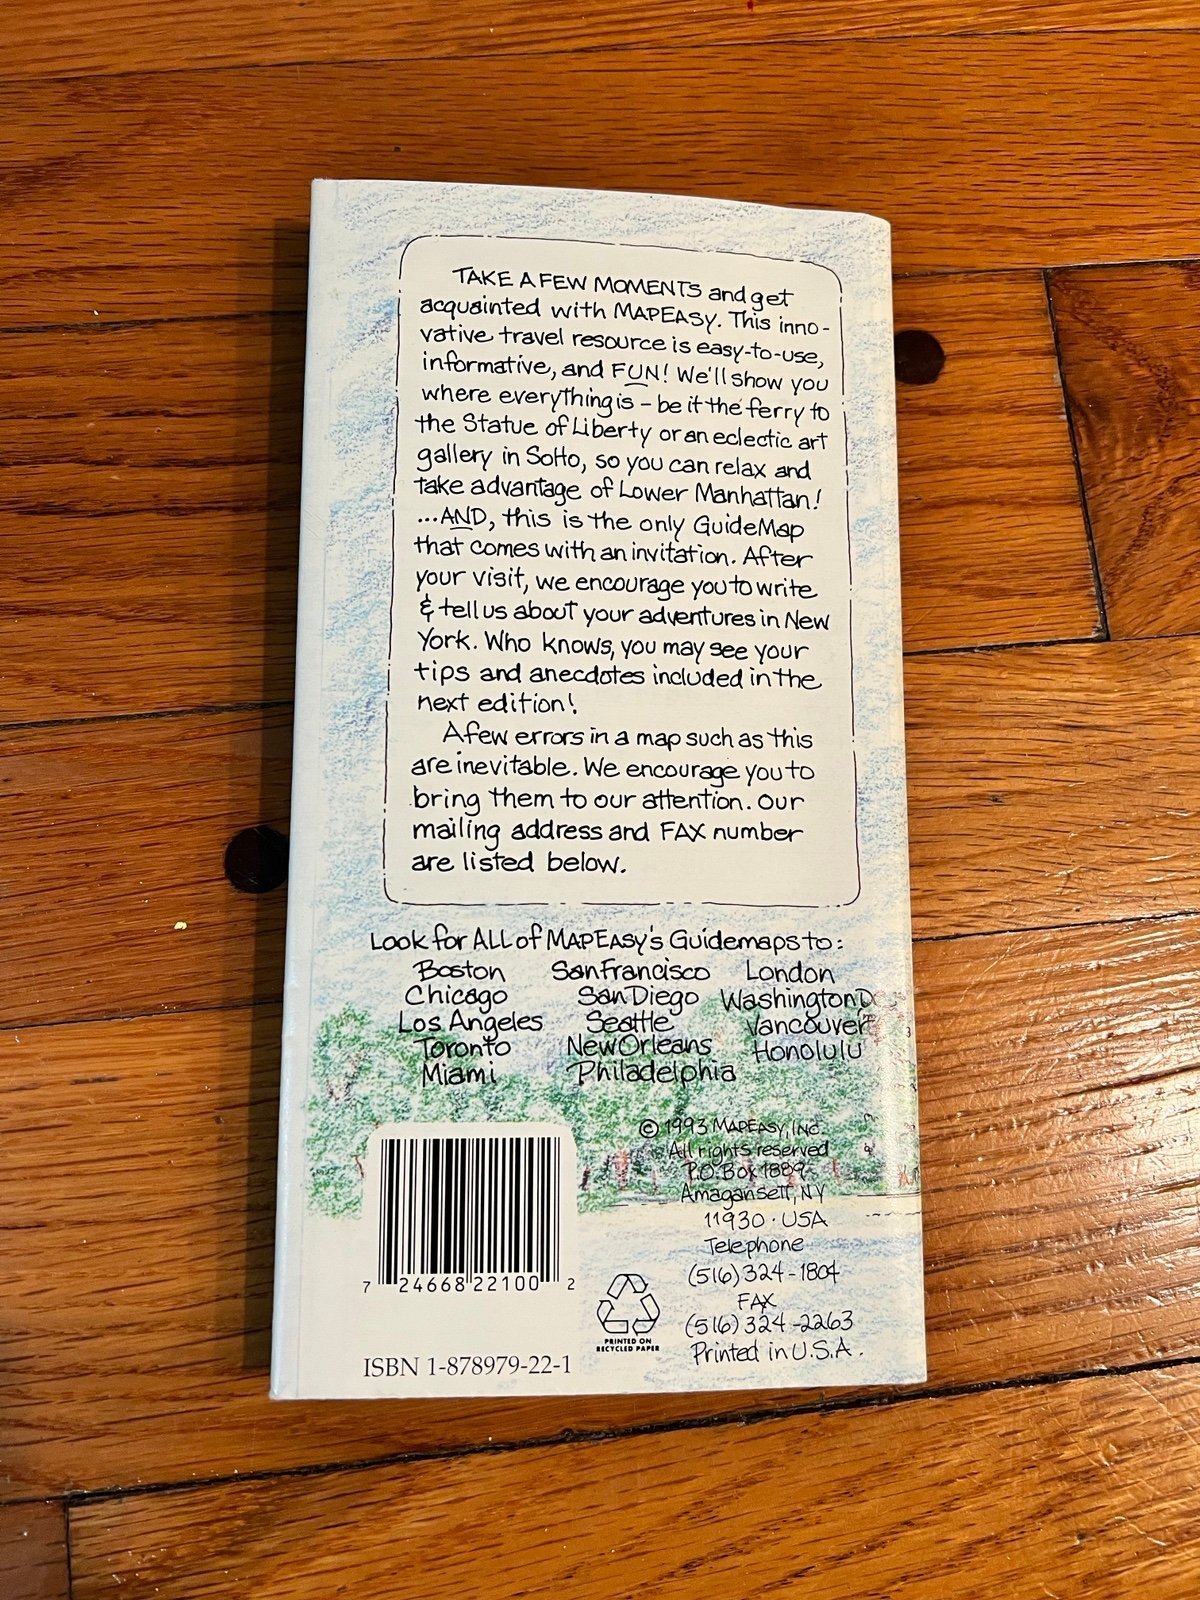 TAKE A FEW MOMENTS and get
acquainted with MAPEASY. This inno-
vative travel resource is easy-to-use,
informative, and FUN! We'll show you
where everything is – be it the ferry to
the Statue of Liberty or an eclectic art
gallery in SoHo, so you can relax and
take advantage of Lower Manhattan!
...AND, this is the only GuideMap
that comes with an invitation. After
your visit, we encourage you to write
& tell us about your adventures in New
York. Who knows, you may see your
tips and anecdotes included in the
next edition!
A few errors in a map such as this
are inevitable. We encourage you to
bring them to our attention. Our
mailing address and FAX number
are listed below.
Look for ALL of MAPEASY's Guidemaps to:
Boston San Francisco London
Chicago San Diego Washington DC
Los Angeles Seattle Vancouver
Toronto New Orleans Honolulu
Miami Philadelphia
© 1993 MAPEASY, INC.
All rights reserved
P.O. Box 1889
Amagansett, NY
11930 · USA
Telephone
(516) 324-1804
FAX
(516) 324-2263
Printed in U.S.A.
7 24668 22100 2
PRINTED ON
RECYCLED PAPER
ISBN 1-878979-22-1